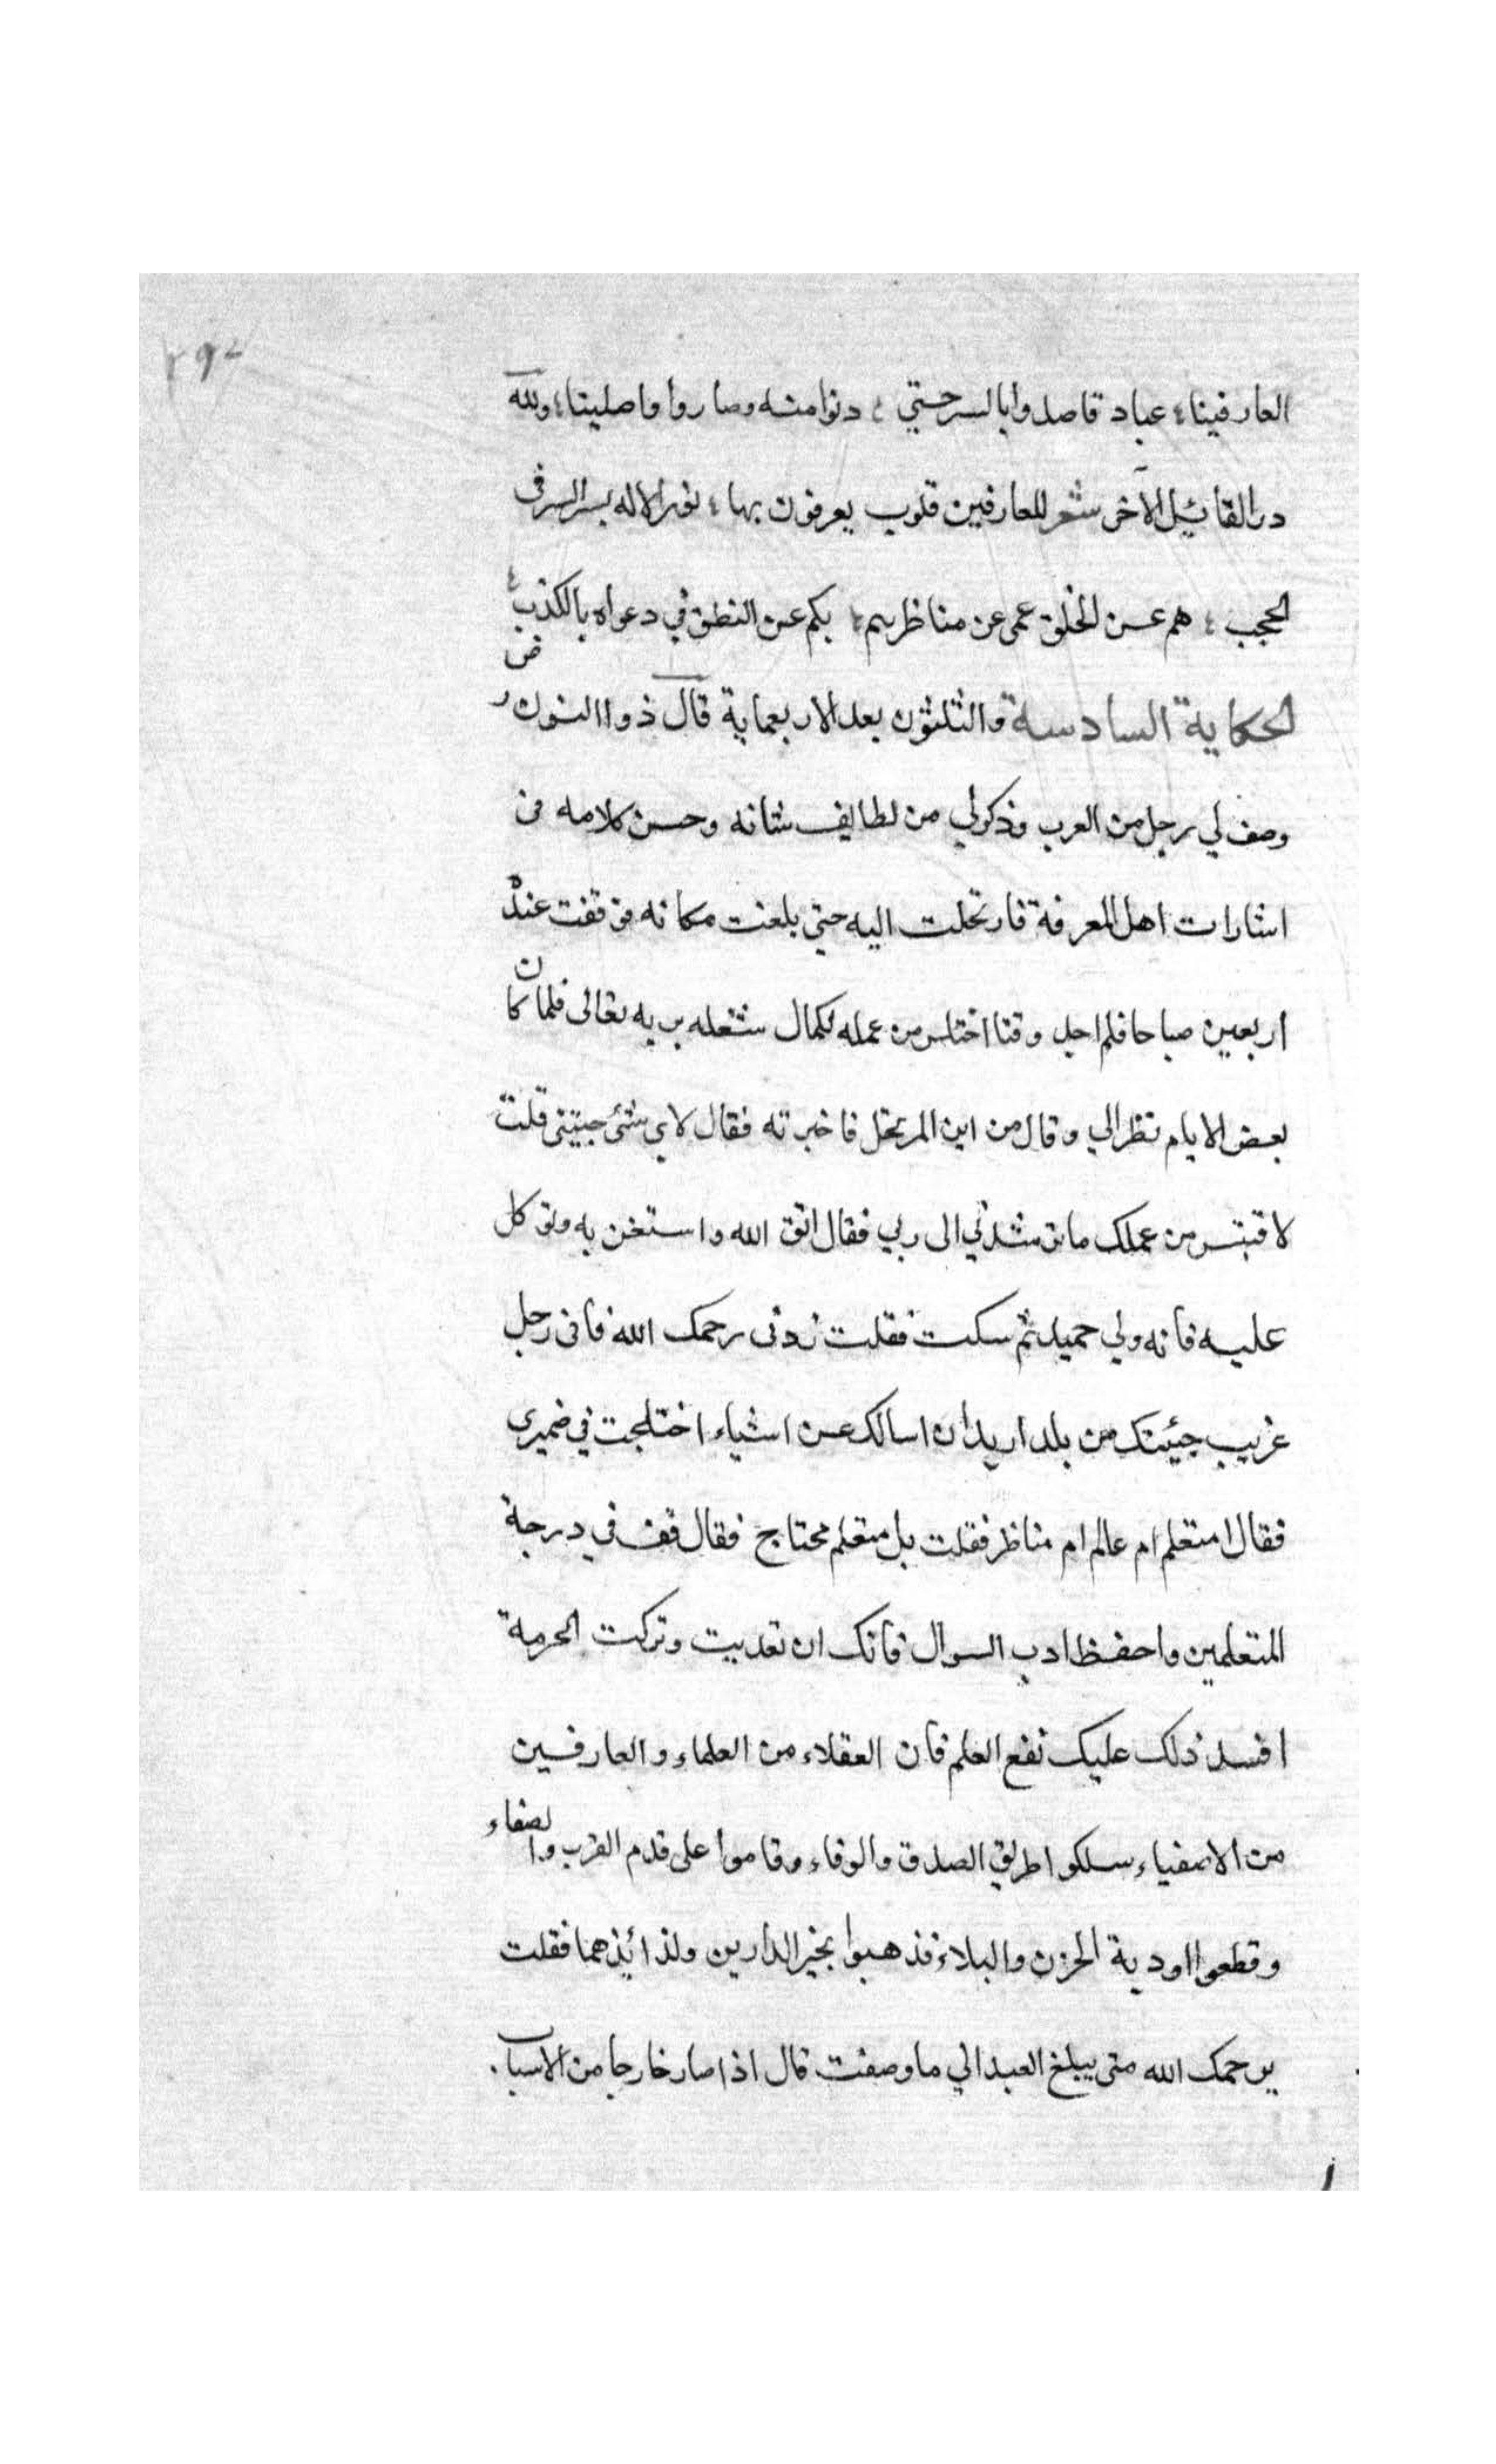 العارفينا؛ عباد قاصدوا بالسر حتي ؛ دنوا منه وصاروا واصلينا؛ ولله
در القائيل الآخر شعر للعارفين قلوب يعرفون بها؛ نور الاله بسر السر في
الحجب ؛ هم عن الخلق عمى عن مناظرهم؛ بكم عن النطق في دعواه بالكذب؛
الحكاية السادسة والثلثون بعد الاربعماية قال ذوا النون رض
وصف لي رجل من العرب وذكر لي من لطايف شانه وحسن كلامه فى
اشارات اهل المعرفة فارتحلت اليه حتى بلغت مكانه فوقفت عنده
اربعين صباحا فلم اجد وقتا اختلس من عمله لكمال شغله بربه تعالى فلما كان
بعض الايام نظر الي وقال من اين المرتحل فاخبرته فقال لاي شئ جيتني قلت
لاقتبس من عملك ما يرشدني الى ربي فقال اتق الله واستعن به وتوكل
عليه فانه ولي حميد ثم سكت فقلت زدنى رحمك الله فانى رجل
غريب جيئتك من بلد اريد ان اسالك عن اشياء اختلجت في ضميرى
فقال امتعلم ام عالم ام مناظر فقلت بل متعلم محتاج فقال قف في درجة
المتعلمين واحفظ ادب السوال فانك ان تعديت وتركت الحرمة
افسد ذلك عليك نفع العلم فان العقلاء من العلماء والعارفين
من الاصفياء سلكوا طريق الصدق والوفاء وقاموا على قدم القرب والصفاء
وقطعوا اودية الحزن والبلاء فذهبوا بخير الدارين ولذائذهما فقلت
يرحمك الله متى يبلغ العبد الي ما وصفت قال اذا صار خارجا من الاسباب